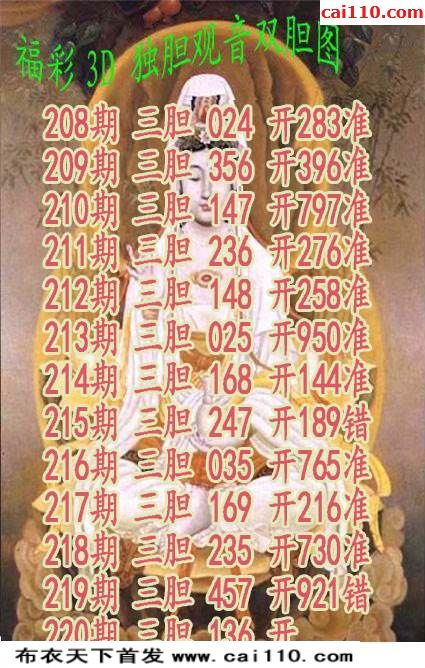 cai110.com
福彩3D 独胆观音双胆图
208期 三胆 024 开283准
209期 三胆 356 开396准
210期 三胆 147 开797准
211期 三胆 236 开276准
212期 三胆 148 开258准
213期 三胆 025 开950准
214期 三胆 168 开144准
215期 三胆 247 开189错
216期 三胆 035 开765准
217期 三胆 169 开216准
218期 三胆 235 开730准
219期 三胆 457 开921错
220期 三胆 136 开
布衣天下首发 www.cai110.com